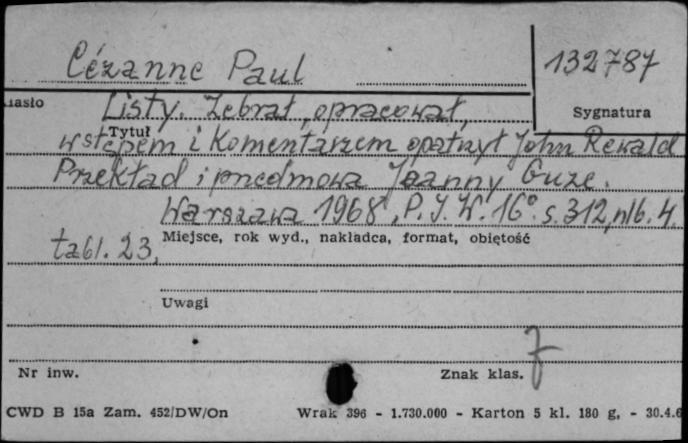 Cézanne Paul
132787
Hasło
Listy. Zebrał, opracował,
Sygnatura
Tytuł
wstępem i Komentarzem opatrzył John Rewald
Przekład i przedmowa Joanny Guze.
Warszawa 1968, P.I.W. 16° s. 312, nlb. 4.
Miejsce, rok wyd., nakładca, format, objętość
tabl. 23,
Uwagi
Nr inw.
Znak klas.
CWD B 15a Zam. 452/DW/On Wrak 396 - 1.730.000 - Karton 5 kl. 180 g, - 30.4.6